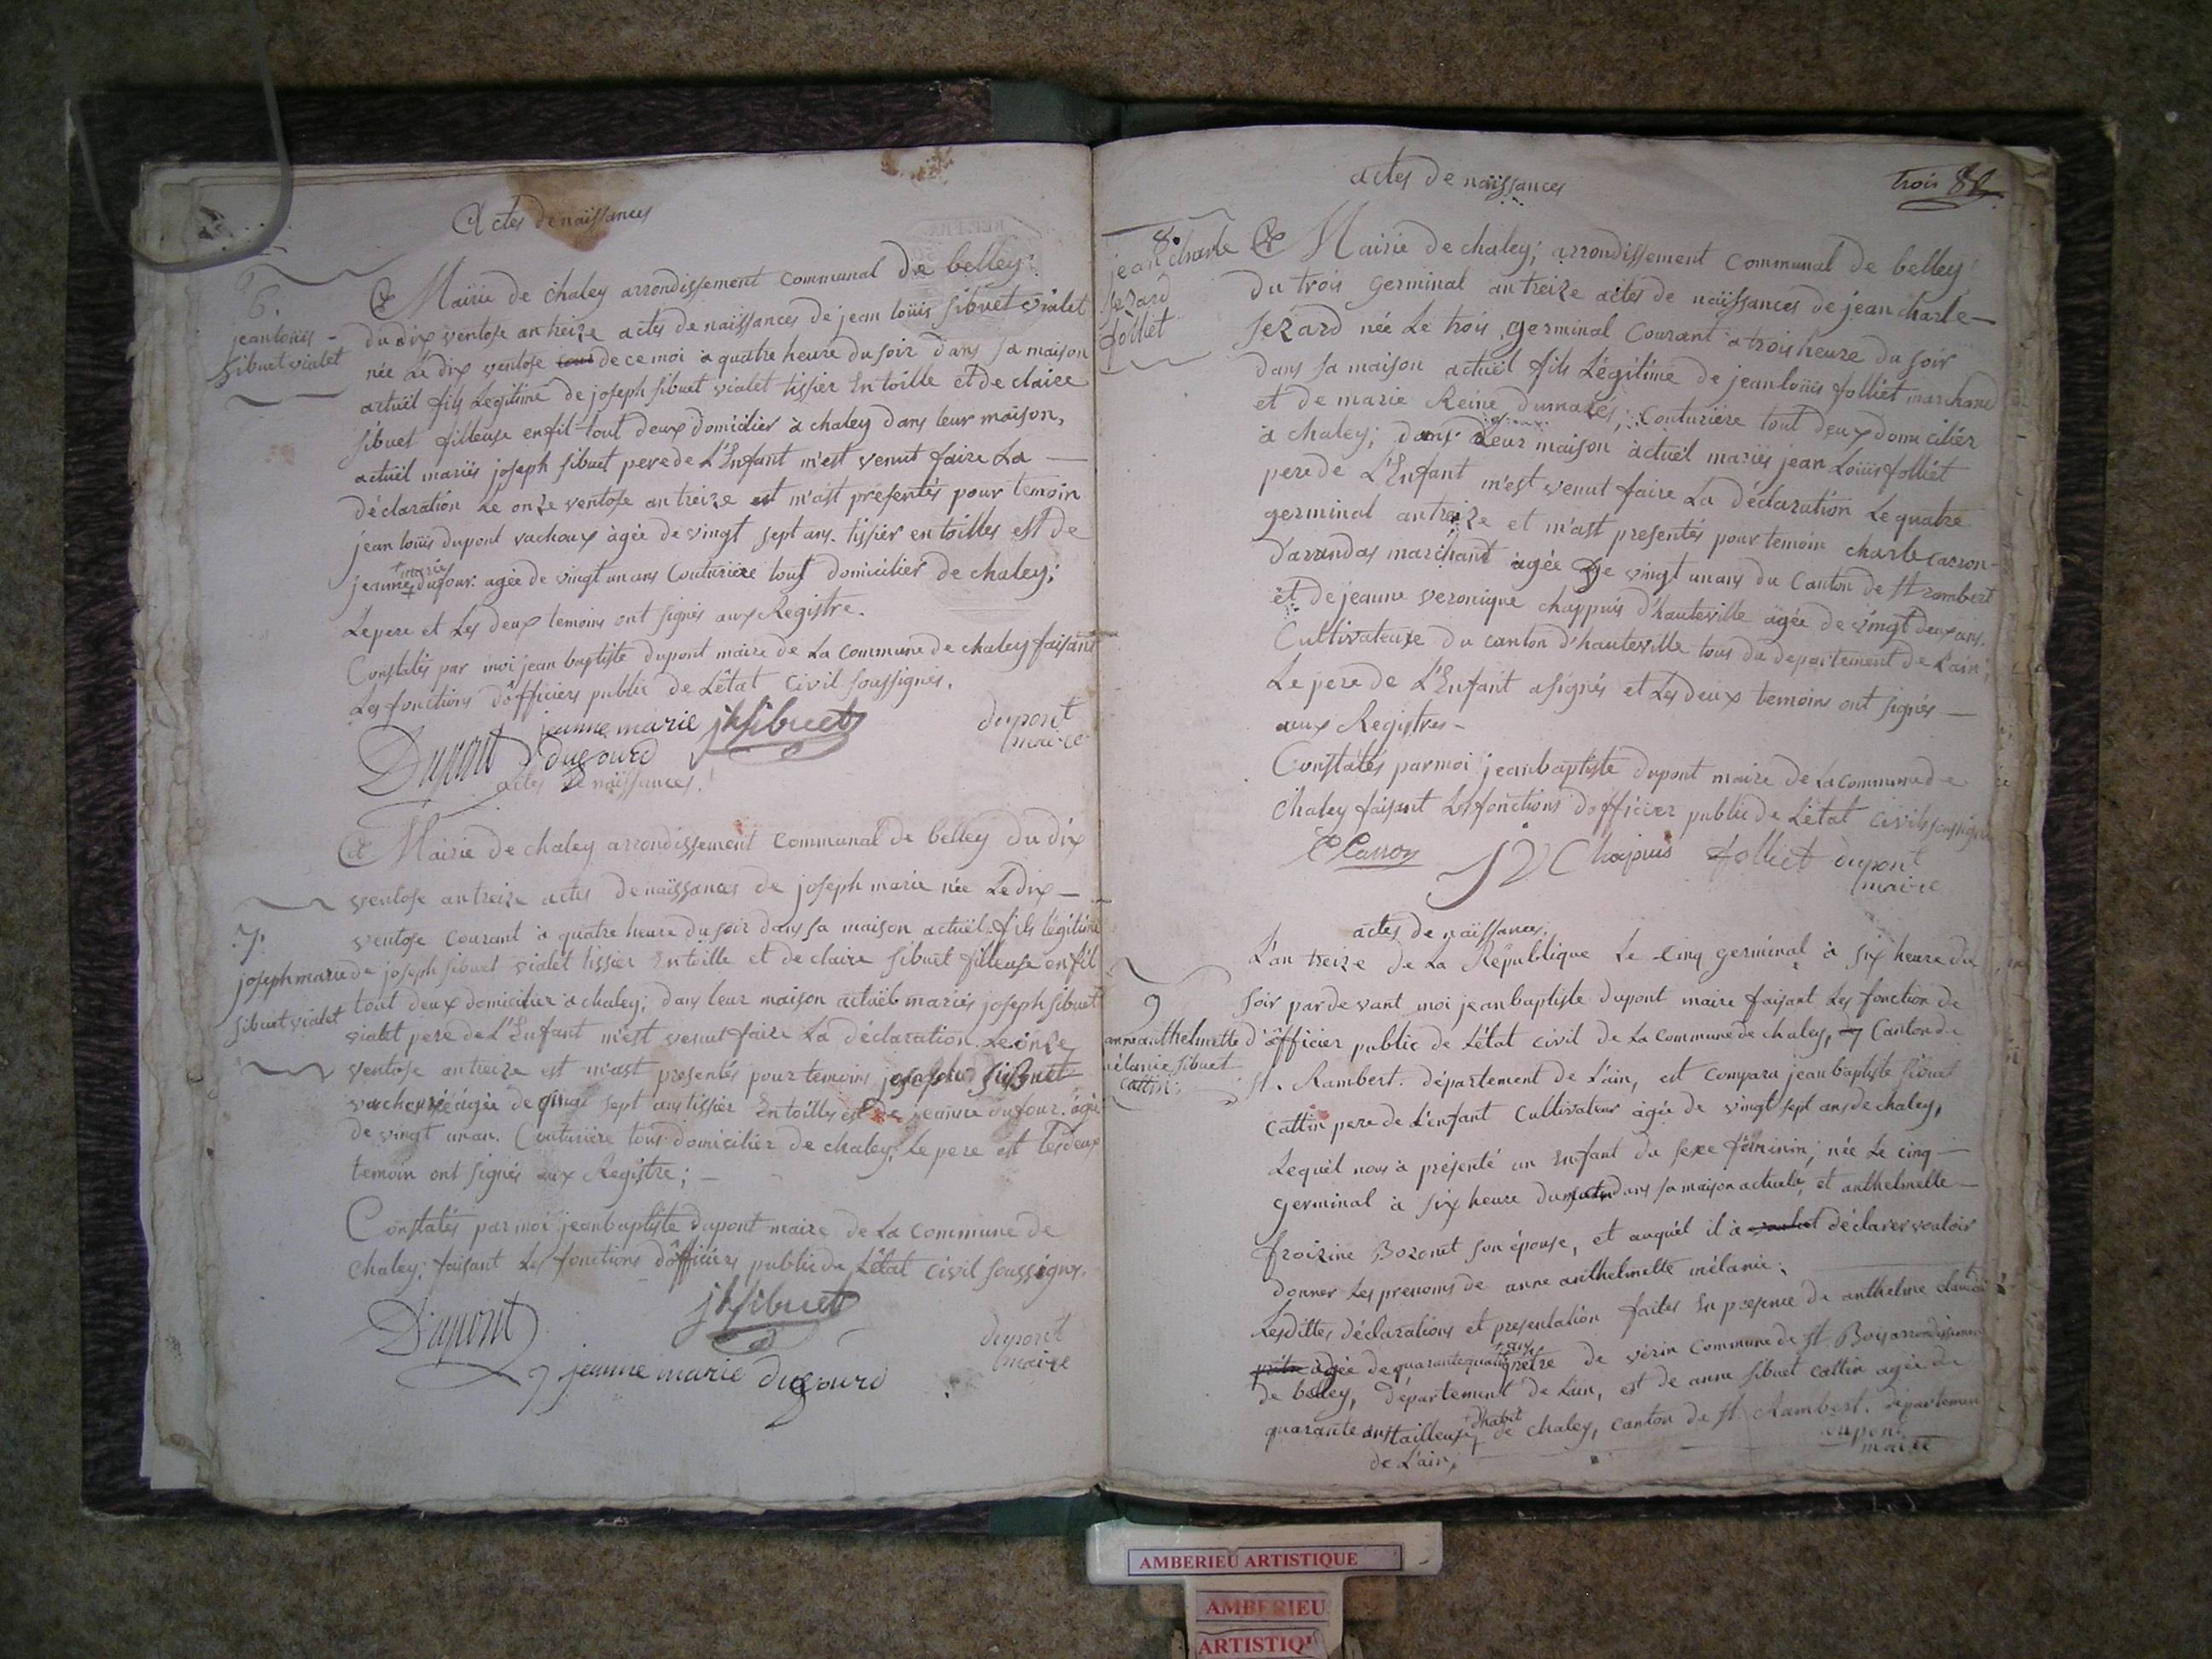 Actes de naissances
6
jean louis
sibuet vialet
Mairie de chaley arrondissement communal de belley.
du dix ventose an treize actes de naissances de jean louis sibuet vialet
née Le dix ventose de ce moi a quatre heure du soir dans sa maison
actuël fils Legitime de joseph sibuet vialet tissier En toille et de claire
sibuet filleuse en fil tout deux domicilier à chaley dans leur maison,
actuël mariés joseph sibuet pere de L'Enfant m'est venut faire La —
déclaration Le onze ventose an treize est m'ast présentés pour temoin
jean louis dupont vachoux âgée de vingt sept ans. tissier en toilles est de
jeanne marie dufour. agée de vingt un ans Couturière tout domicilier de chaley;
Le pere et Les deux temoins ont signés aux Registre.
Constatés par moi jean baptiste dupont maire de La commune de chaley faisant
Les fonctions d'officiers public de L'état civil soussignés.
jeanne marie jh Sibuet dupont
Dupont dufourd maire
actes de naissances!
Mairie de chaley arrondissement Communal de belley du dix
ventose an treize actes de naissances de joseph marie née Le dix —
7.
joseph marie
sibuet vialet
ventose courant à quatre heure du soir dans sa maison actuël fils légitime
de joseph sibuet vialet tissier En toille et de claire sibuet filleuse en fil
tout deux domicilier à chaley; dans leur maison actuël mariés joseph sibuet
vialet pere de L'Enfant m'est venut faire La déclaration Le onze
ventose an treize est m'ast presentés pour temoins joseph sibuet
âgée de vingt sept ans tissier En toilles est de jeanne dufour. âgée
de vingt un an. Couturière tous domicilier de chaley. Le pere est les deux
temoin ont signés aux Registre; —
Constatés par moi jean baptiste dupont maire de La commune de
Chaley; faisant Les fonctions d'officiers public de L'état civil soussignés.
Dupont jh Sibuet dupont
maire
jeanne marie dufourd
actes de naissances
trois
8.
jean charle
Sezard
folliet
Mairie de chaley; arrondissement communal de belley
du trois germinal an treize actes de naissances de jean charle —
Sezard née Le trois germinal Courant a trois heure du soir
dans sa maison actuël fils Légitime de jean louis folliet marchand
et de marie Reine dumarés, Couturière tout deux domicilier
à chaley; dans Leur maison actuël mariés jean Louis folliet
pere de L'Enfant m'est venut faire La déclaration Le quatre
germinal an treize et m'ast presentés pour temoin charle carron
d'arandas marchant âgée de vingt un ans du Canton de St rambert
et de jeanne veronique chappuis d'hauteville âgée de vingt deux ans.
Cultivateuse du canton d'hauteville tous du departement de L'ain;
Le pere de L'Enfant a signés et Les deux temoins ont signés —
aux Registres —
Constatés par moi jean baptiste dupont maire de La commune de
chaley faisant Les fonctions d'officier public de L'état civil soussignés
C Carron JV Chapuis folliet dupont
maire
actes de naissances.
9
anne anthelmette
mélanie sibuet
cattin;
L'an treize de La République Le cinq germinal à six heure du
soir par devant moi jean baptiste dupont maire faisant Les fonction de
d'officier public de L'état civil de La commune de chaley, Canton de
st. Rambert. département de L'ain, est comparu jean baptiste sibuet
cattin pere de L'enfant cultivateur âgée de vingt sept ans de chaley,
Lequël nous à présenté un Enfant du sexe féminin, née Le cinq —
germinal à six heure du matin dans sa maison actuele, et anthelmette —
froizine Bozonet son épouse, et auquël il à déclarer vouloir
donner Les prenoms de anne anthelmette mélanie;
Lesdittes déclarations et presentation faites En presence de anthelme
âgée de quarante quatre ans prêtre de vérin Commune de st. Bois arrondissement
de belley, département de L'ain, est de anne sibuet cattin agée de
quarante ans tailleuse d'habit de chaley, canton de st. Rambert. département
de L'ain,
dupont
maire
AMBERIEU ARTISTIQUE
AMBERIEU
ARTISTIQU